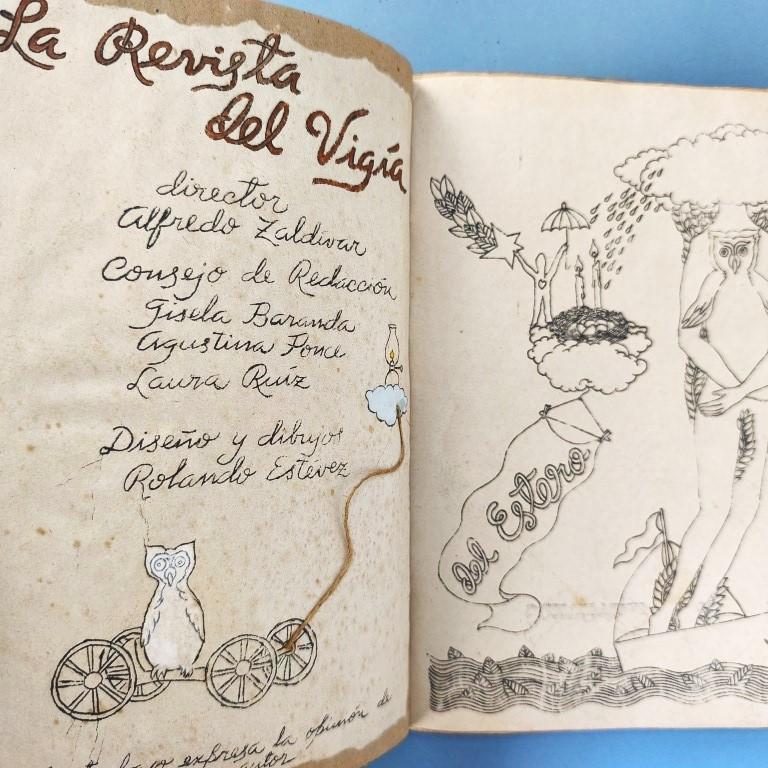 La Revista
del Vigía
director
Alfredo Zaldívar
Consejo de Redacción
Gisela Baranda
Agustina Ponce
Laura Ruíz
Diseño y dibujos
Rolando Estévez
expresa la opinión de
autor
Del Estero